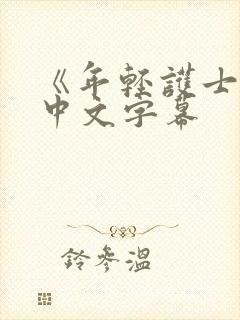 《年輕護士
中文字幕
鈴參溫